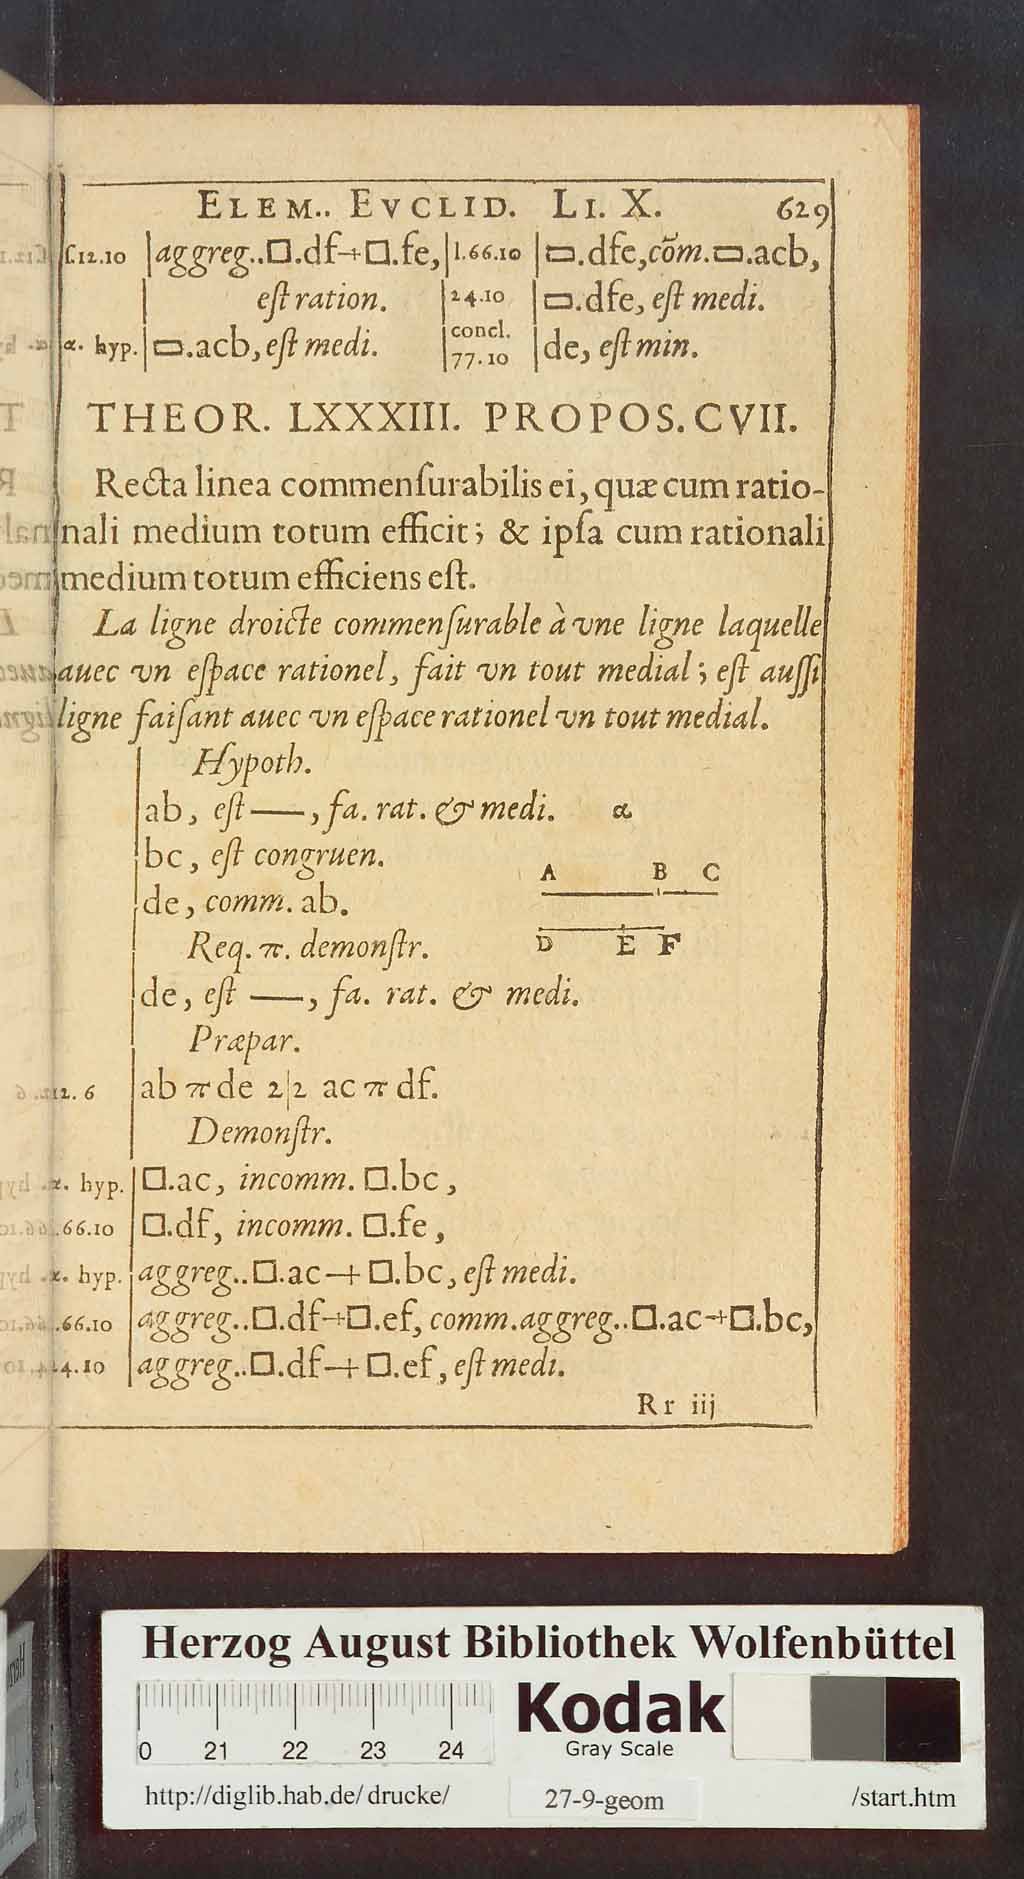 ELEM.. EVCLID. LI. X. 629
ſ.12.10 aggreg..□.df+□.fe, l.66.10 ▭.dfe,cõm.▭.acb,
eſt ration. 24.10 ▭.dfe, eſt medi.
α. hyp. ▭.acb, eſt medi. concl. 77.10 de, eſt min.
THEOR. LXXXIII. PROPOS. CVII.
Recta linea commenſurabilis ei, quæ cum ratio-
nali medium totum efficit; & ipſa cum rationali
medium totum efficiens eſt.
La ligne droicte commenſurable à vne ligne laquelle
auec vn eſpace rationel, fait vn tout medial; eſt auſſi
ligne faiſant auec vn eſpace rationel vn tout medial.
Hypoth.
ab, eſt —, fa. rat. & medi. α
bc, eſt congruen.
de, comm. ab.
A B C
D E F
Req. π. demonſtr.
de, eſt —, fa. rat. & medi.
Præpar.
12.6 ab π de 2|2 ac π df.
Demonſtr.
α. hyp. □.ac, incomm. □.bc,
66.10 □.df, incomm. □.fe,
α. hyp. aggreg..□.ac+□.bc, eſt medi.
66.10 aggreg..□.df+□.ef, comm.aggreg..□.ac+□.bc,
24.10 aggreg..□.df+□.ef, eſt medi.
Rr iij
Herzog August Bibliothek Wolfenbüttel
0 21 22 23 24
Kodak
Gray Scale
http://diglib.hab.de/drucke/ 27-9-geom /start.htm